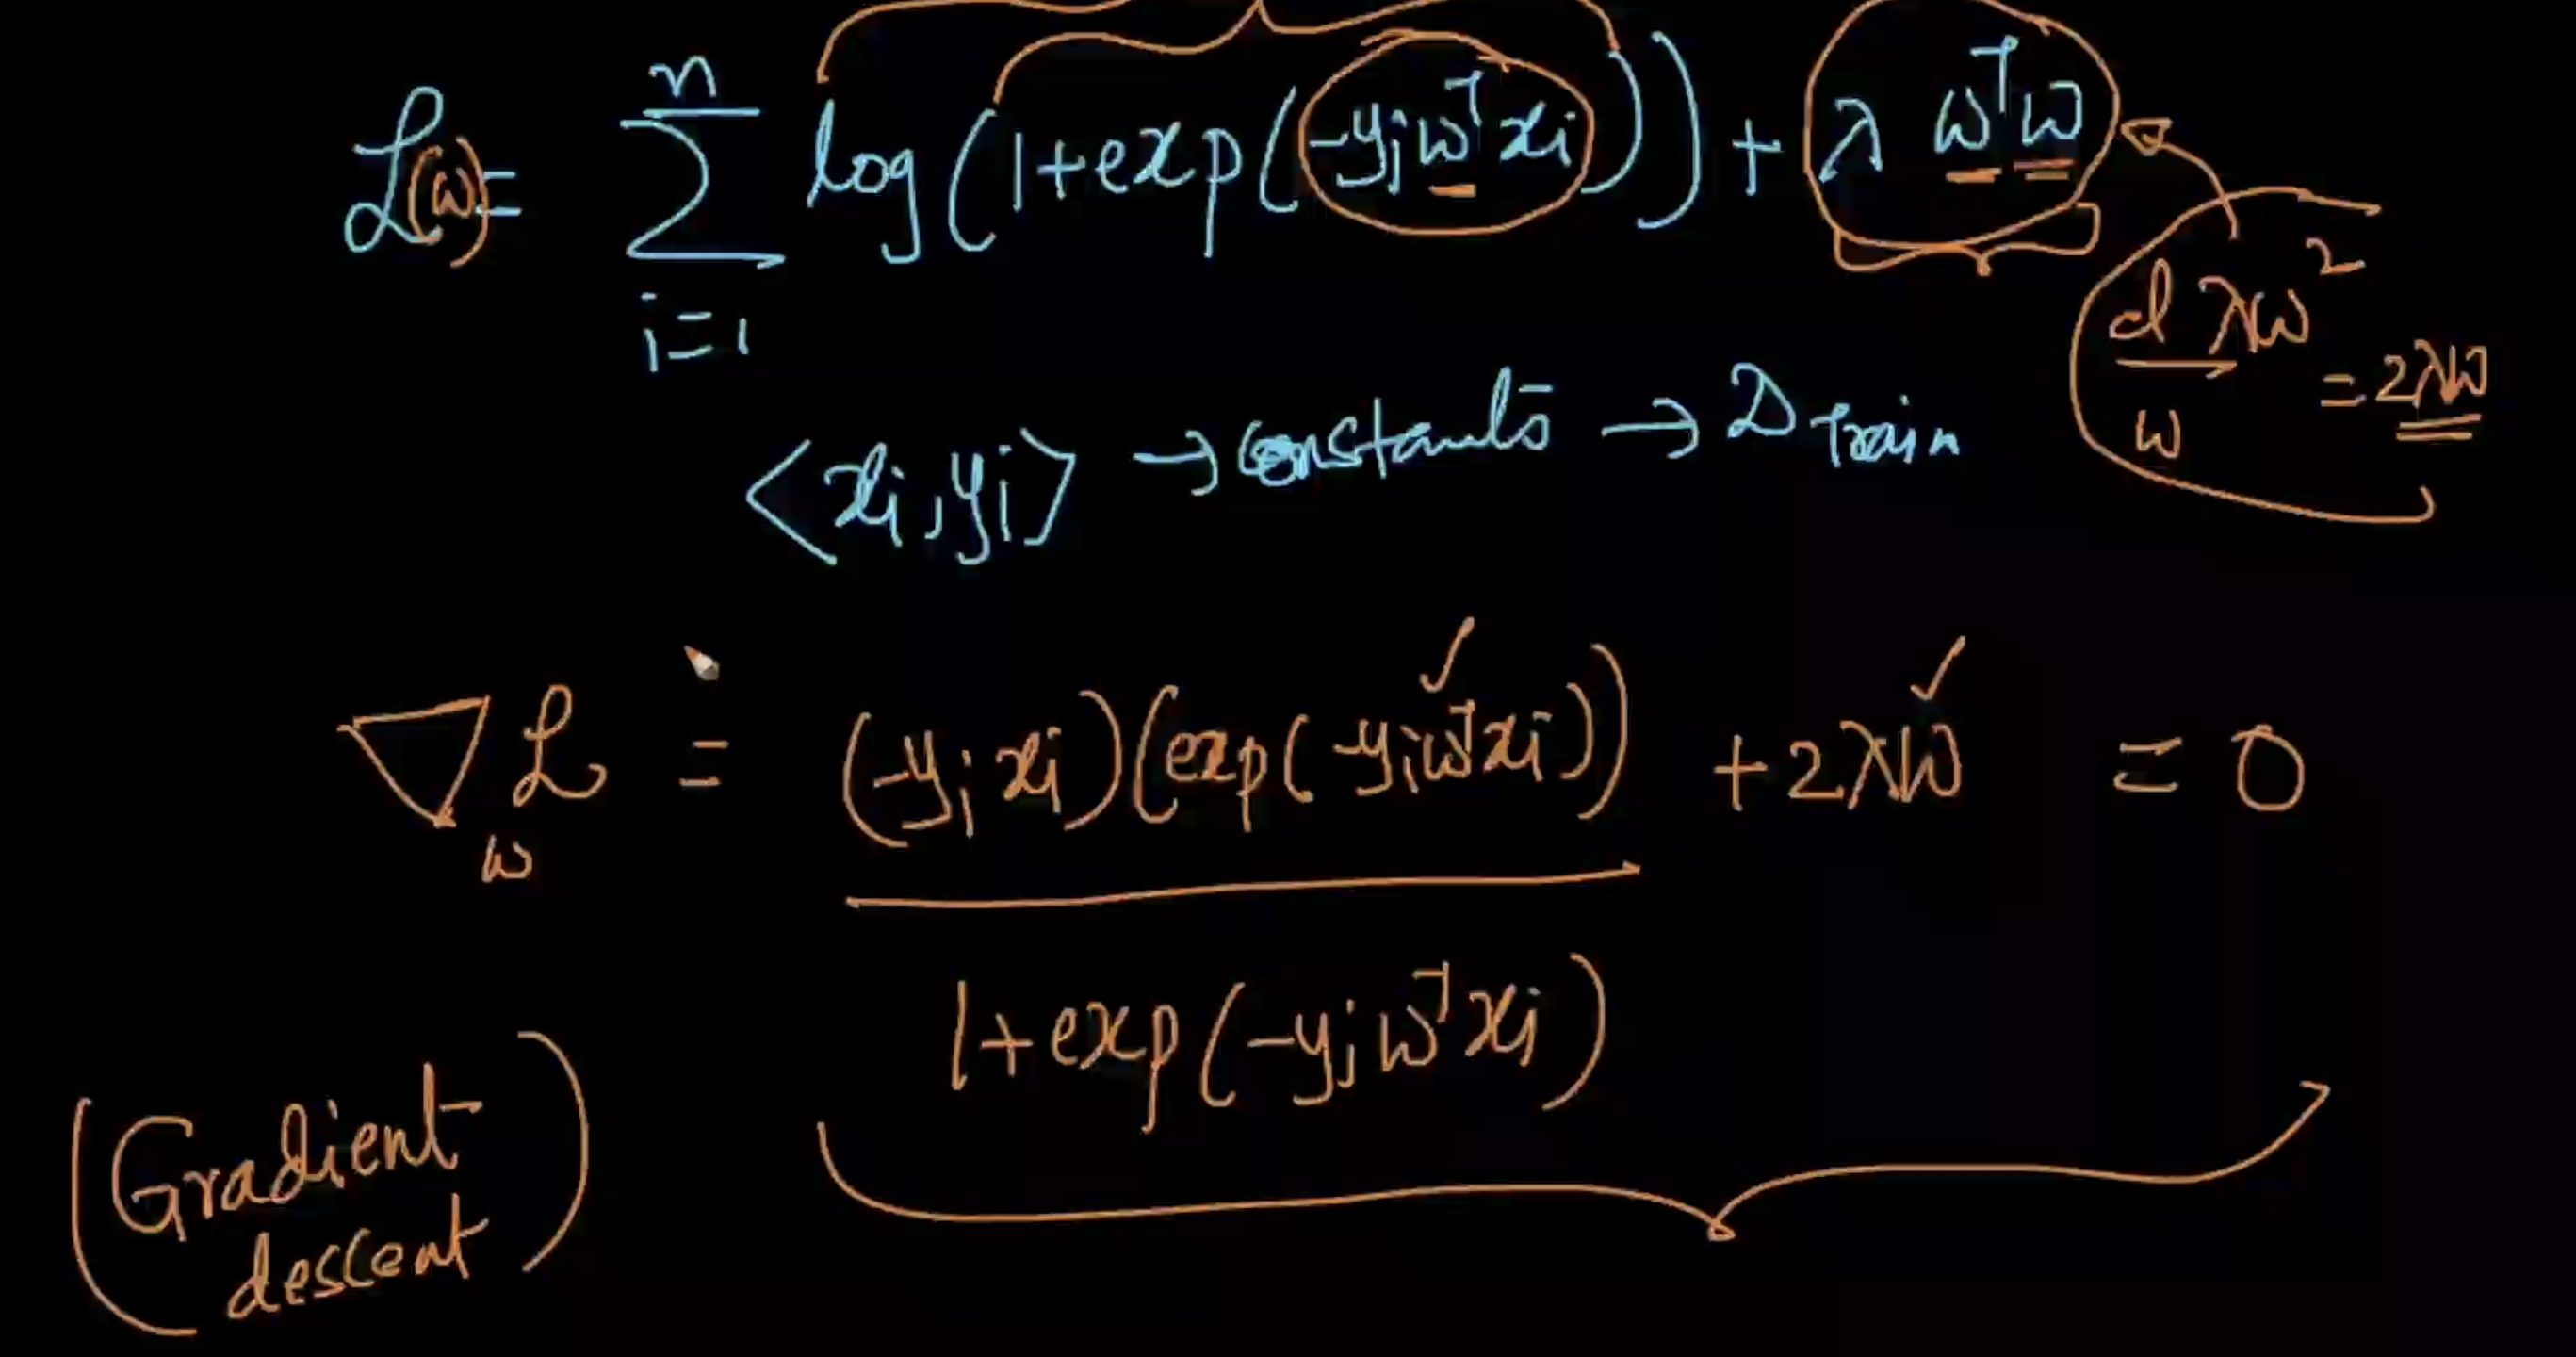 ℒ(w) = Σ_{i=1}^{n} log(1+exp(-yᵢwᵀxᵢ)) + λ wᵀw
d/w λw² = 2λw
<xᵢ, yᵢ> → constants → D Train
∇_w ℒ = (-yᵢxᵢ)(exp(-yᵢwᵀxᵢ)) / 1+exp(-yᵢwᵀxᵢ) + 2λw = 0
(Gradient
descent)